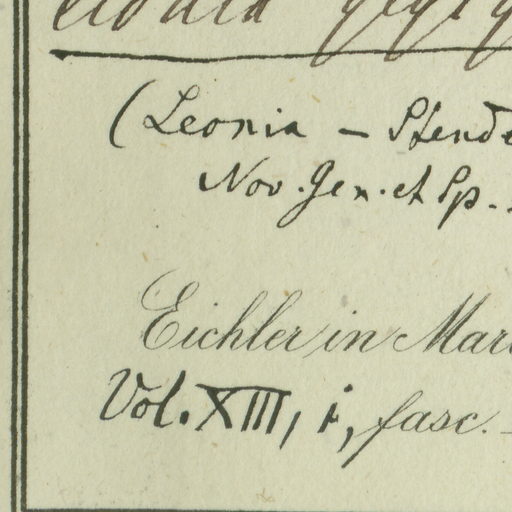 (Leonia - Stend
Nov. Gen. et Sp.
Eichler in Mar
Vol. XIII, i, fasc.